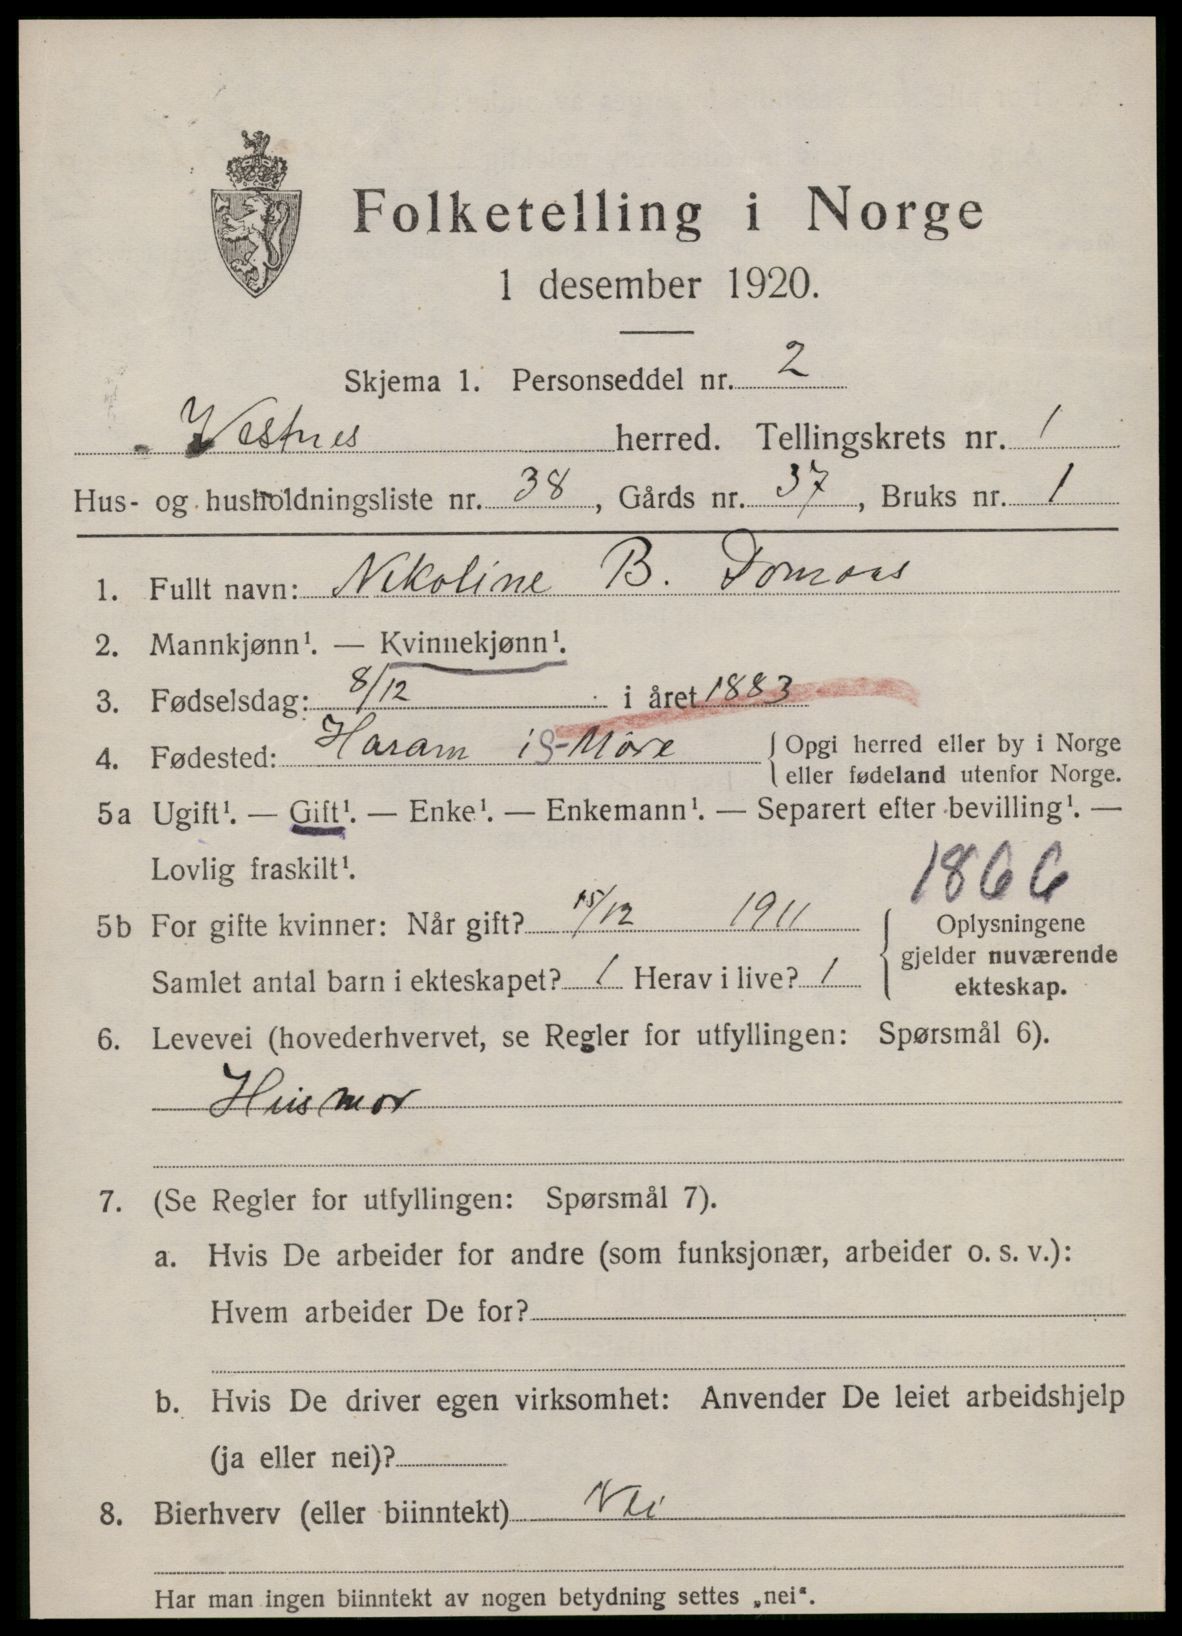 Folketelling i Norge
1 desember 1920.
Skjema 1. Personseddel nr. 2
Vestnes herred. Tellingskrets nr. 1
Hus- og husholdningsliste nr. 38, Gårds nr. 37, Bruks nr. 1
1. Fullt navn: Nikoline B. Domaas
2. Mannkjønn¹. — Kvinnekjønn¹.
3. Fødselsdag: 8/12 i året 1883
4. Fødested: Haram i S-Möre {Opgi herred eller by i Norge
eller fødeland utenfor Norge.
5a Ugift¹. — Gift¹. — Enke¹. — Enkemann¹. — Separert efter bevilling¹. —
Lovlig fraskilt¹.
1866
5b For gifte kvinner: Når gift? 15/12 1911
Samlet antal barn i ekteskapet? 1 Herav i live? 1
{Oplysningene
gjelder nuværende
ekteskap.
6. Levevei (hovederhvervet, se Regler for utfyllingen: Spørsmål 6).
Husmor
7. (Se Regler for utfyllingen: Spørsmål 7).
a. Hvis De arbeider for andre (som funksjonær, arbeider o. s. v.):
Hvem arbeider De for?
b. Hvis De driver egen virksomhet: Anvender De leiet arbeidshjelp
(ja eller nei)?
8. Bierhverv (eller biinntekt) Nei
Har man ingen biinntekt av nogen betydning settes „nei“.